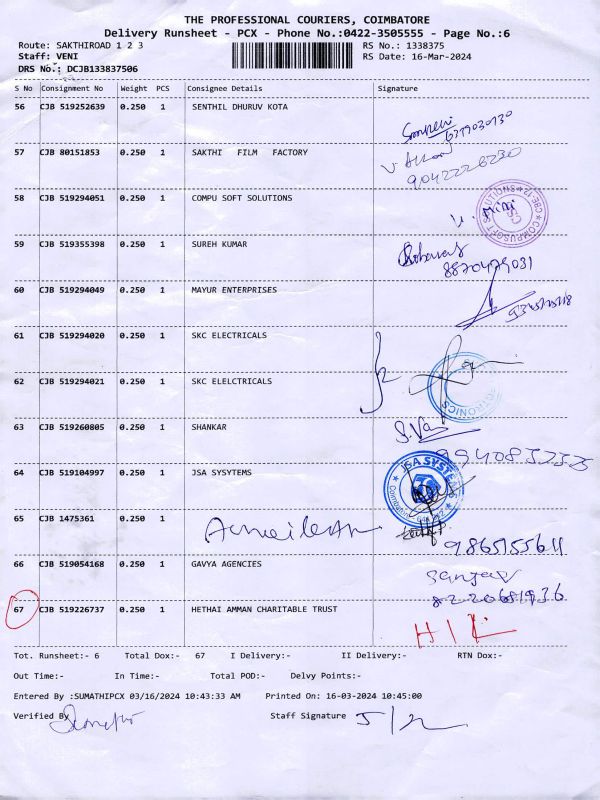 THE PROFESSIONAL COURIERS, COIMBATORE
Delivery Runsheet - PCX - Phone No.:0422-3505555 - Page No.:6
Route: SAKTHIROAD 1 2 3 RS No.: 1338375
Staff: VENI RS Date: 16-Mar-2024
DRS No.: DCJB133837506
S No Consignment No Weight PCS Consignee Details Signature
56 CJB 519252639 0.250 1 SENTHIL DHURUV KOTA
57 CJB 80151853 0.250 1 SAKTHI FILM FACTORY
9042226230
58 CJB 519294051 0.250 1 COMPU SOFT SOLUTIONS
59 CJB 519355398 0.250 1 SUREH KUMAR
8870479031
60 CJB 519294049 0.250 1 MAYUR ENTERPRISES
61 CJB 519294020 0.250 1 SKC ELECTRICALS
62 CJB 519294021 0.250 1 SKC ELELCTRICALS
63 CJB 519260805 0.250 1 SHANKAR
64 CJB 519104997 0.250 1 JSA SYSYTEMS JSA SYSTEMS
65 CJB 1475361 0.250 1
9865155611
66 CJB 519054168 0.250 1 GAVYA AGENCIES Sanjay
67 CJB 519226737 0.250 1 HETHAI AMMAN CHARITABLE TRUST
Tot. Runsheet:- 6 Total Dox:- 67 I Delivery:- II Delivery:- RTN Dox:-
Out Time:- In Time:- Total POD:- Delvy Points:-
Entered By :SUMATHIPCX 03/16/2024 10:43:33 AM Printed On: 16-03-2024 10:45:00
Verified By Staff Signature